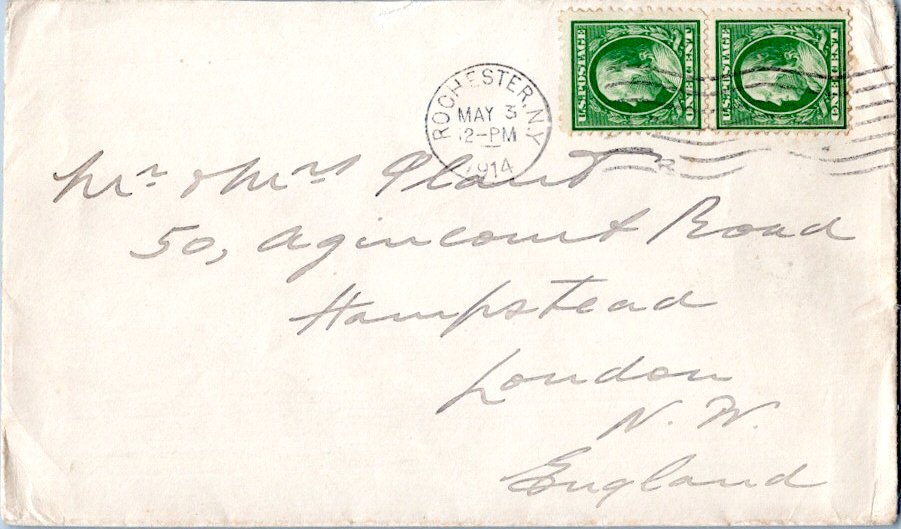 U.S. POSTAGE ONE CENT
U.S. POSTAGE ONE CENT
ROCHESTER, N.Y.
MAY 3
12-PM
1914
Mr. & Mrs. Plant
50, Agincourt Road
Hampstead
London
N. W.
England